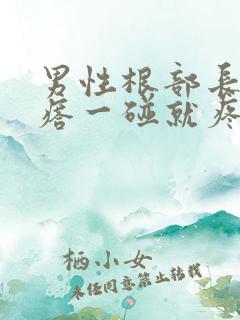 男性根部長
瘩一碰就疼
栖小女
未经同意禁止转载